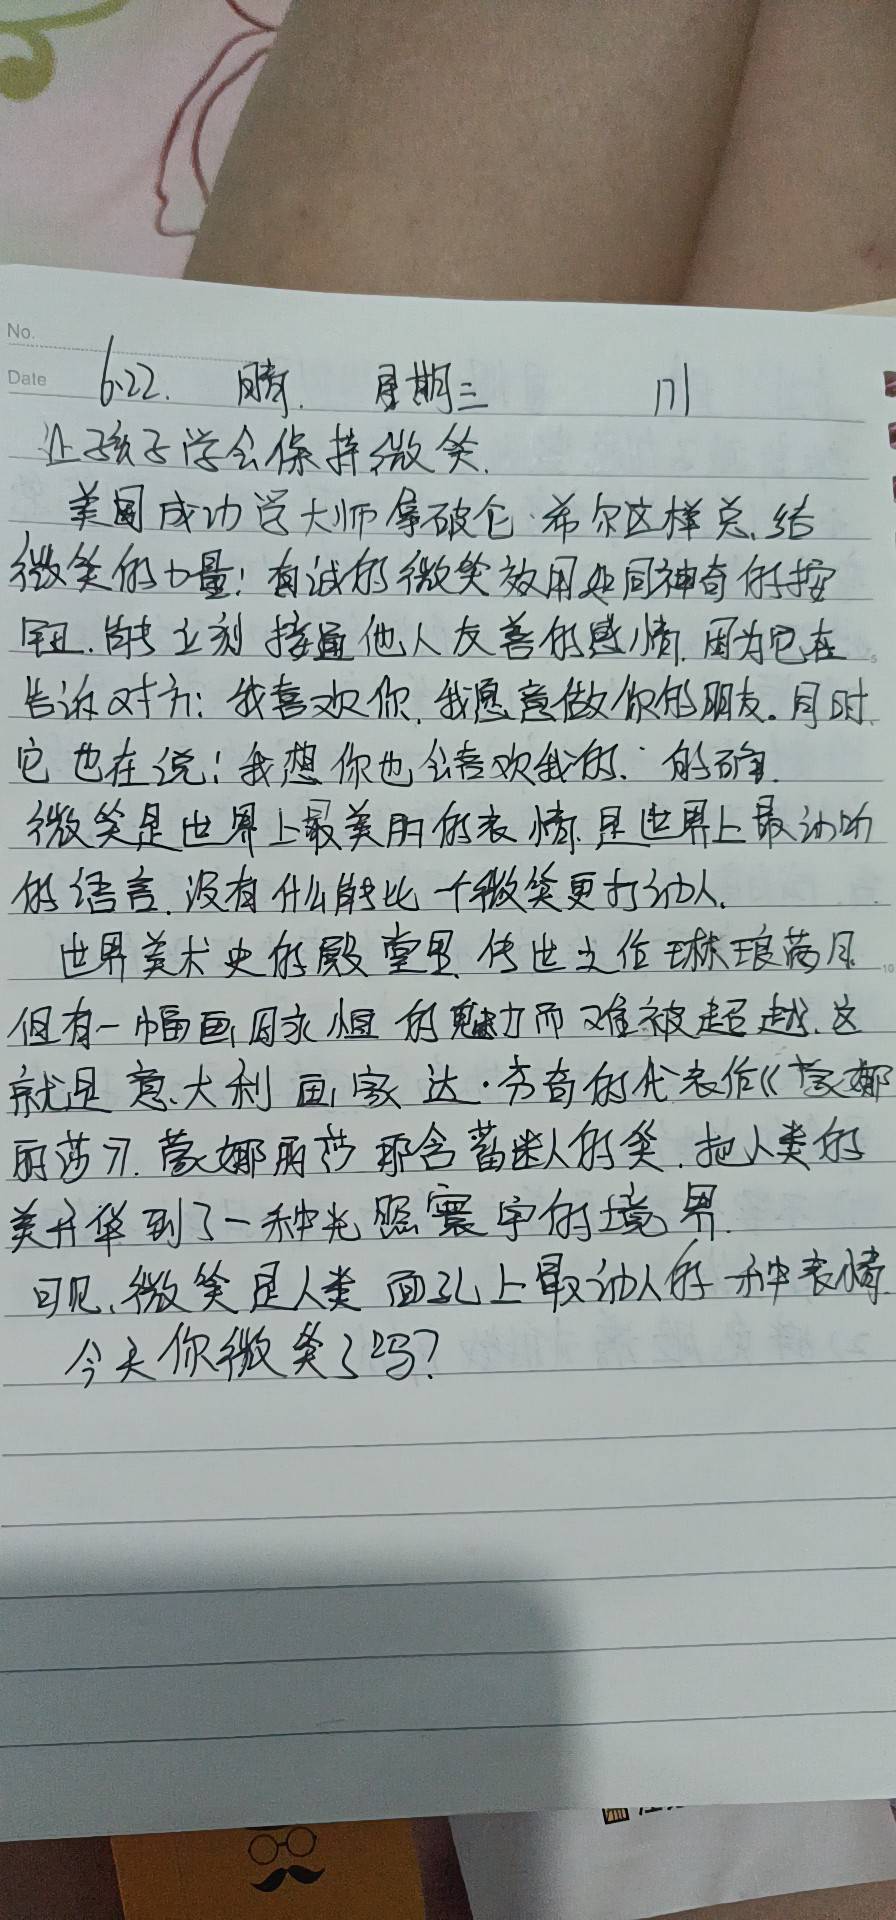 No.
Date 6.22. 晴. 星期三 171
让孩子学会保持微笑.
美国成功学大师拿破仑·希尔这样总结
微笑的力量: 真诚的微笑效用如同神奇的按
钮.能立刻接通他人友善的感情.因为它在
告诉对方: 我喜欢你.我愿意做你的朋友。同时
它也在说: 我想你也会喜欢我的. 的确.
微笑是世界上最美丽的表情.是世界上最动听
的语言.没有什么能比一个微笑更打动人.
世界美术史的殿堂里.传世之作琳琅满目
但有一幅画因永恒的魅力而难被超越.这
就是意大利画家达·芬奇的代表作《蒙娜
丽莎》.蒙娜丽莎那含蓄迷人的笑.把人类的
美升华到了一种光照寰宇的境界.
可见.微笑是人类面孔上最动人的一种表情.
今天你微笑了吗?
5
10